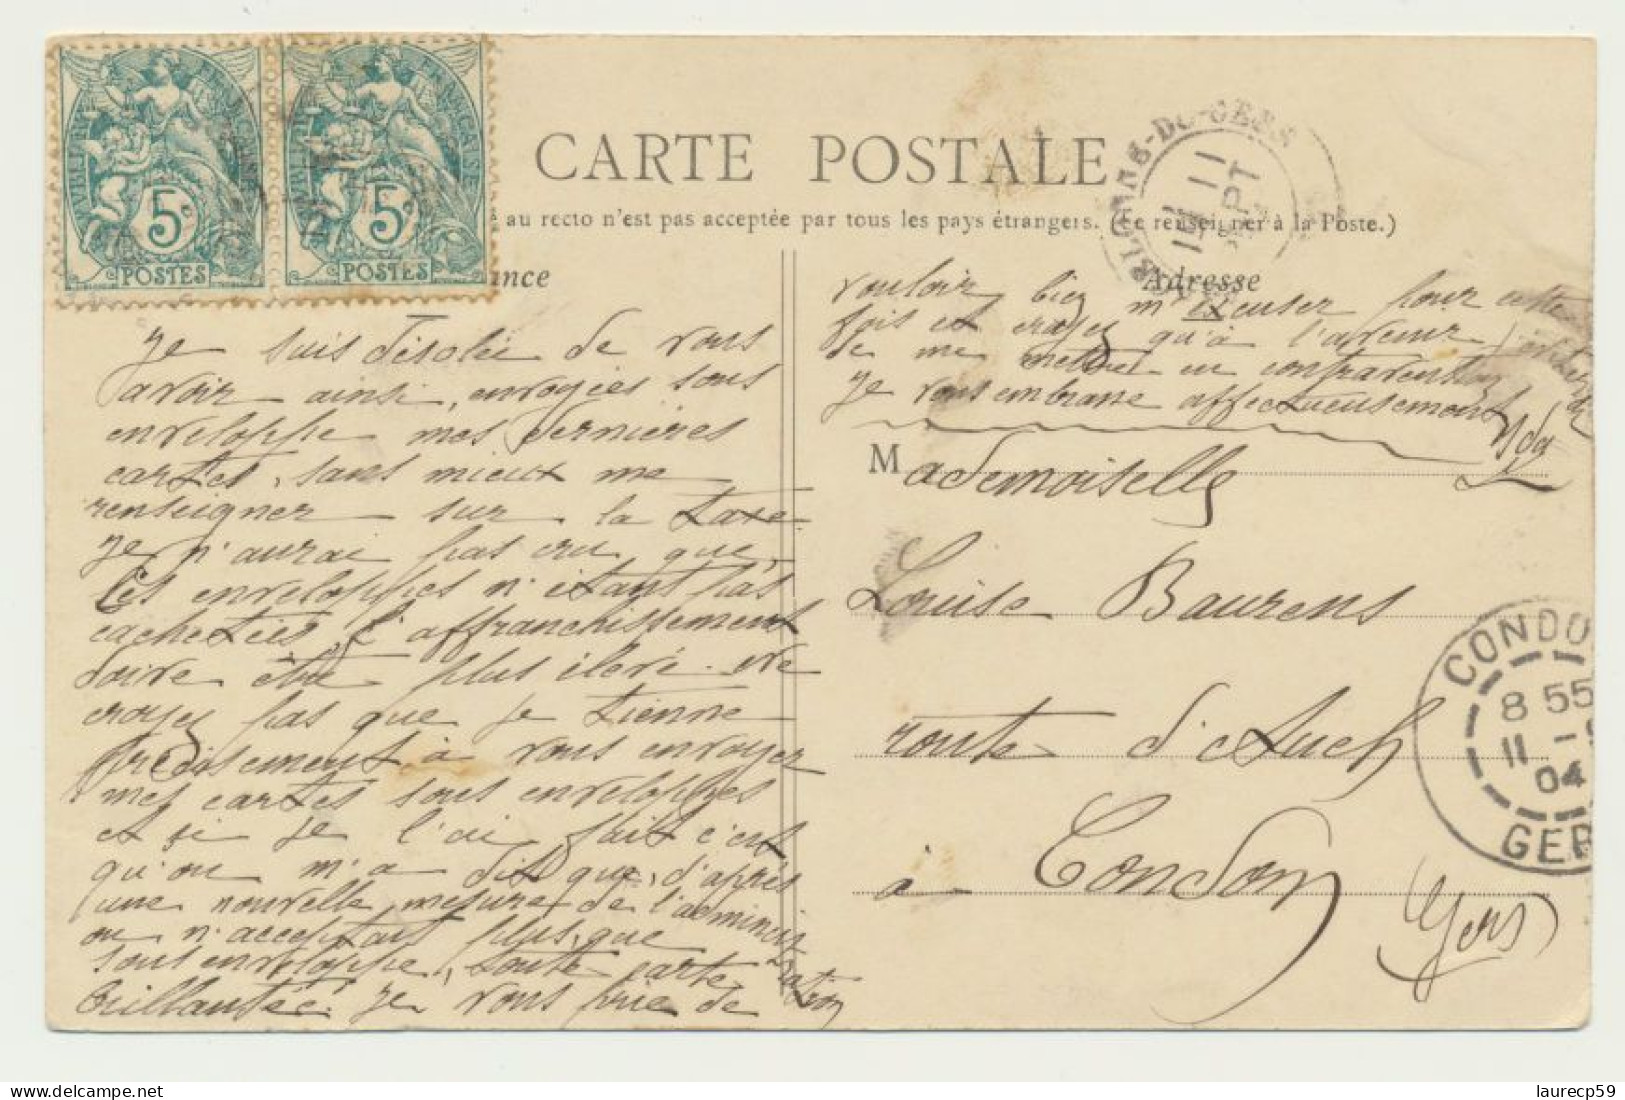 CARTE POSTALE
é au recto n'est pas acceptée par tous les pays étrangers. (Se renseigner à la Poste.)
5c
POSTES
5c
POSTES
nce
Je suis désolée de vous
avoir ainsi, envoyées sous
enveloppe mes dernières
cartes, sans mieux me
renseigner sur la taxe.
Je n'aurai pas cru que,
les enveloppes n'étant pas
cachetées, l'affranchissement
doive être plus élevé. Ne
croyez pas que je tienne
précisement à vous envoyer
mes cartes sous enveloppes
et si je l'ai fait c'est
qu'on m'a dit que, d'après
une nouvelle mesure de l'adminis
tration
on n'acceptait plus, que
sous enveloppe, toute carte
brillantée. Je vous prie de
Adresse
vouloir bien m'excuser pour cette
fois et croyez qu'à l'avenir j'éviterai
de me mettre en contravention
Je vous embrasse affectueusement
Ida
Mademoiselle
Louise Baurens
route d'Auch
à Condom
Gers
11 SEPT
CONDO
8 55
11 -9
04
GER
laurecp59